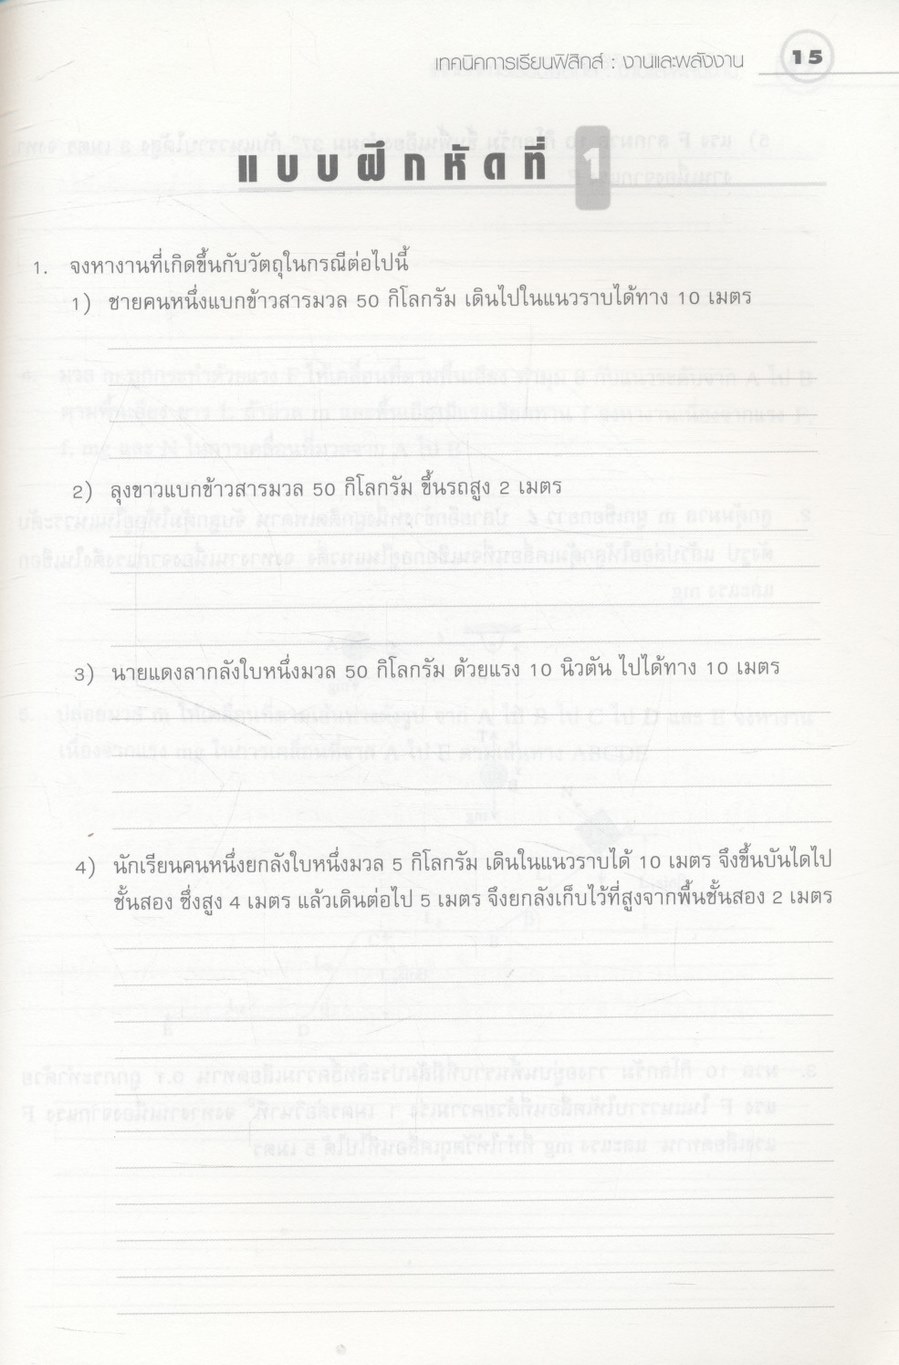 เทคนิคการเรียนฟิสิกส์ : งานและพลังงาน 15
แบบฝึกหัดที่ 1
1. จงหางานที่เกิดขึ้นกับวัตถุในกรณีต่อไปนี้
1) ชายคนหนึ่งแบกข้าวสารมวล 50 กิโลกรัม เดินไปในแนวราบได้ทาง 10 เมตร
2) ลุงขาวแบกข้าวสารมวล 50 กิโลกรัม ขึ้นรถสูง 2 เมตร
3) นายแดงลากลังใบหนึ่งมวล 50 กิโลกรัม ด้วยแรง 10 นิวตัน ไปได้ทาง 10 เมตร
4) นักเรียนคนหนึ่งยกลังใบหนึ่งมวล 5 กิโลกรัม เดินในแนวราบได้ 10 เมตร จึงขึ้นบันไดไป
ชั้นสอง ซึ่งสูง 4 เมตร แล้วเดินต่อไป 5 เมตร จึงยกลังเก็บไว้ที่สูงจากพื้นชั้นสอง 2 เมตร